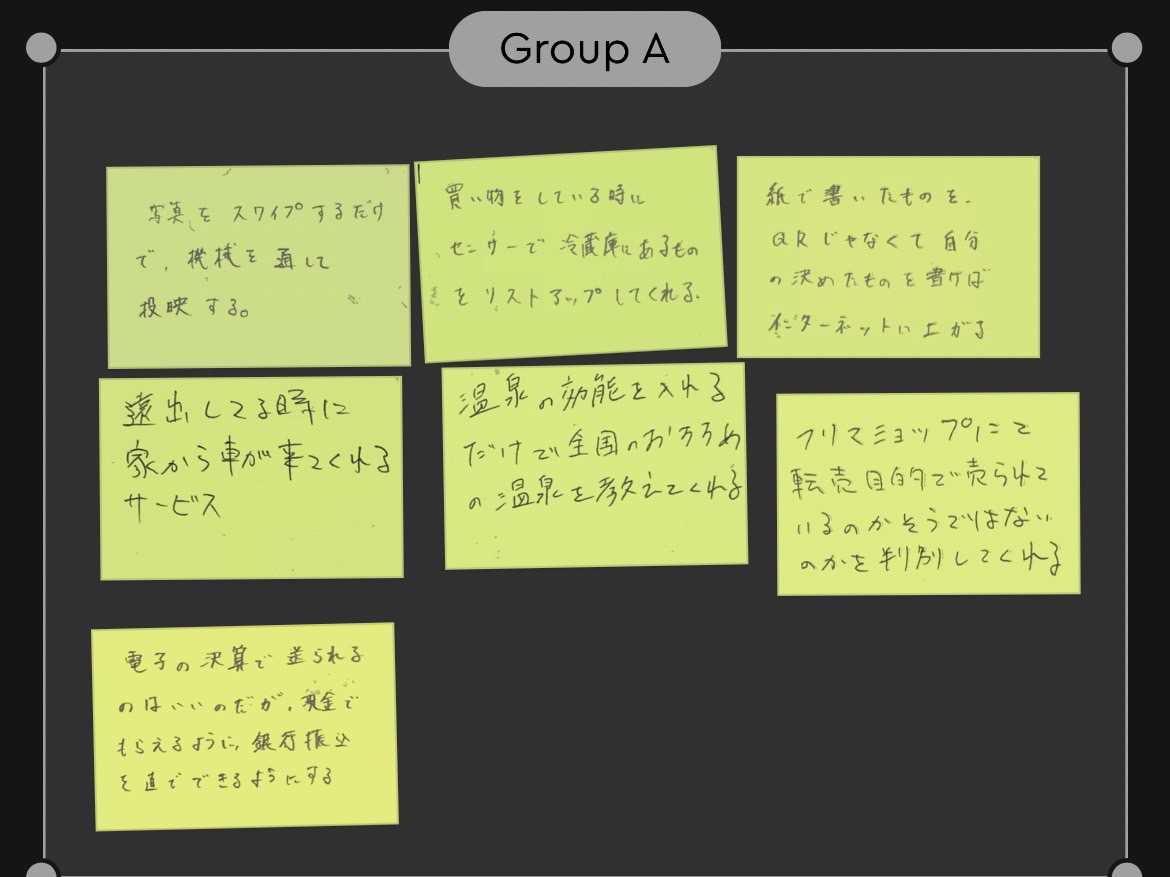 Group A
写真をスワイプするだけ
で、機械を通して
投映する。
買い物をしている時に
センサーで冷蔵庫にあるもの
をリストアップしてくれる。
紙で書いたものを、
QRじゃなくて自分
の決めたものを書けば
インターネットに上がる
遠出してる時に
家から車が来てくれる
サービス
温泉の効能を入れる
だけで全国のおすすめ
の温泉を教えてくれる
フリマショップにて
転売目的で売られて
いるのかそうではない
のかを判別してくれる
電子の決算で送られる
のはいいのだが、現金で
もらえるように、銀行振込
を直でできるようにする